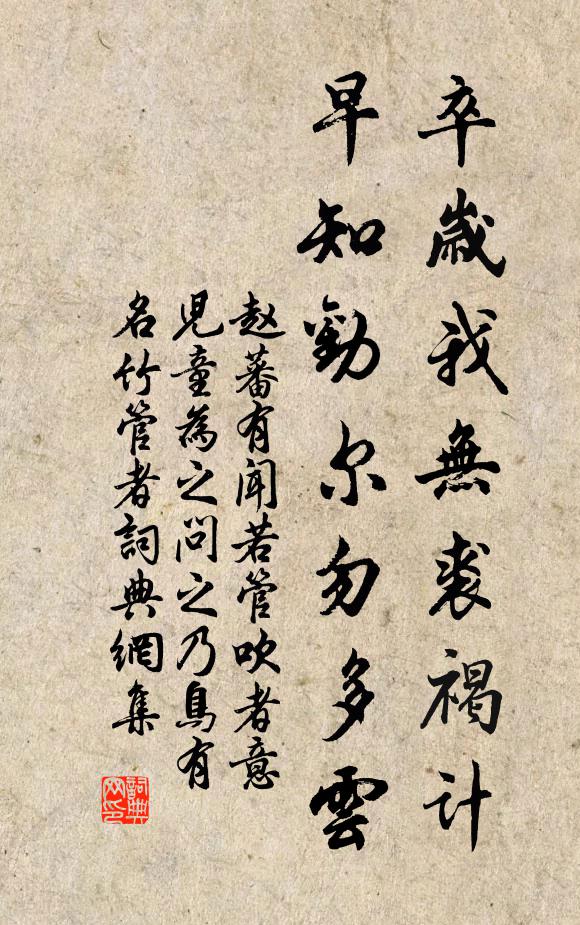 卒歲我無裘褐计
早知勸尔勿多雲
赵蕃有闻若管吹者意
児童為之问之乃鳥有
名竹管者詞典網集
詞典
网印